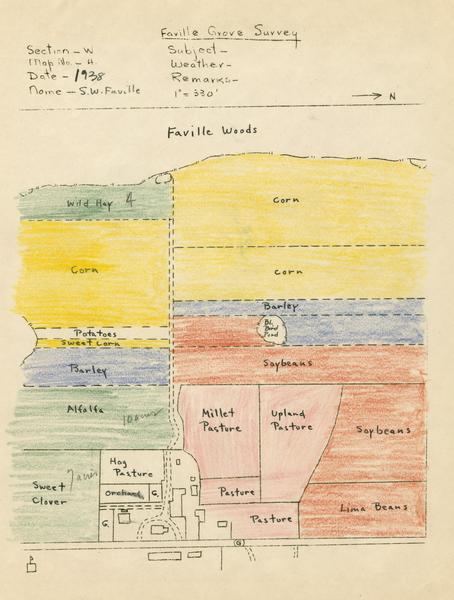 Faville Grove Survey
Section - W
Map No. - H.
Date - 1938
Name - S.W. Faville
Subject -
Weather -
Remarks -
1" = 330'
N
Faville Woods
Wild Hay 4
Corn
Corn
corn
Barley
Potatoes
Sweet Corn
Bl. Bird Pond
Barley
Soybeans
Alfalfa 10 acres
Millet Pasture
Upland Pasture
Soybeans
Hog Pasture
Sweet Clover 7 acres
Orchard
G.
Pasture
Lima Beans
G.
Pasture
G